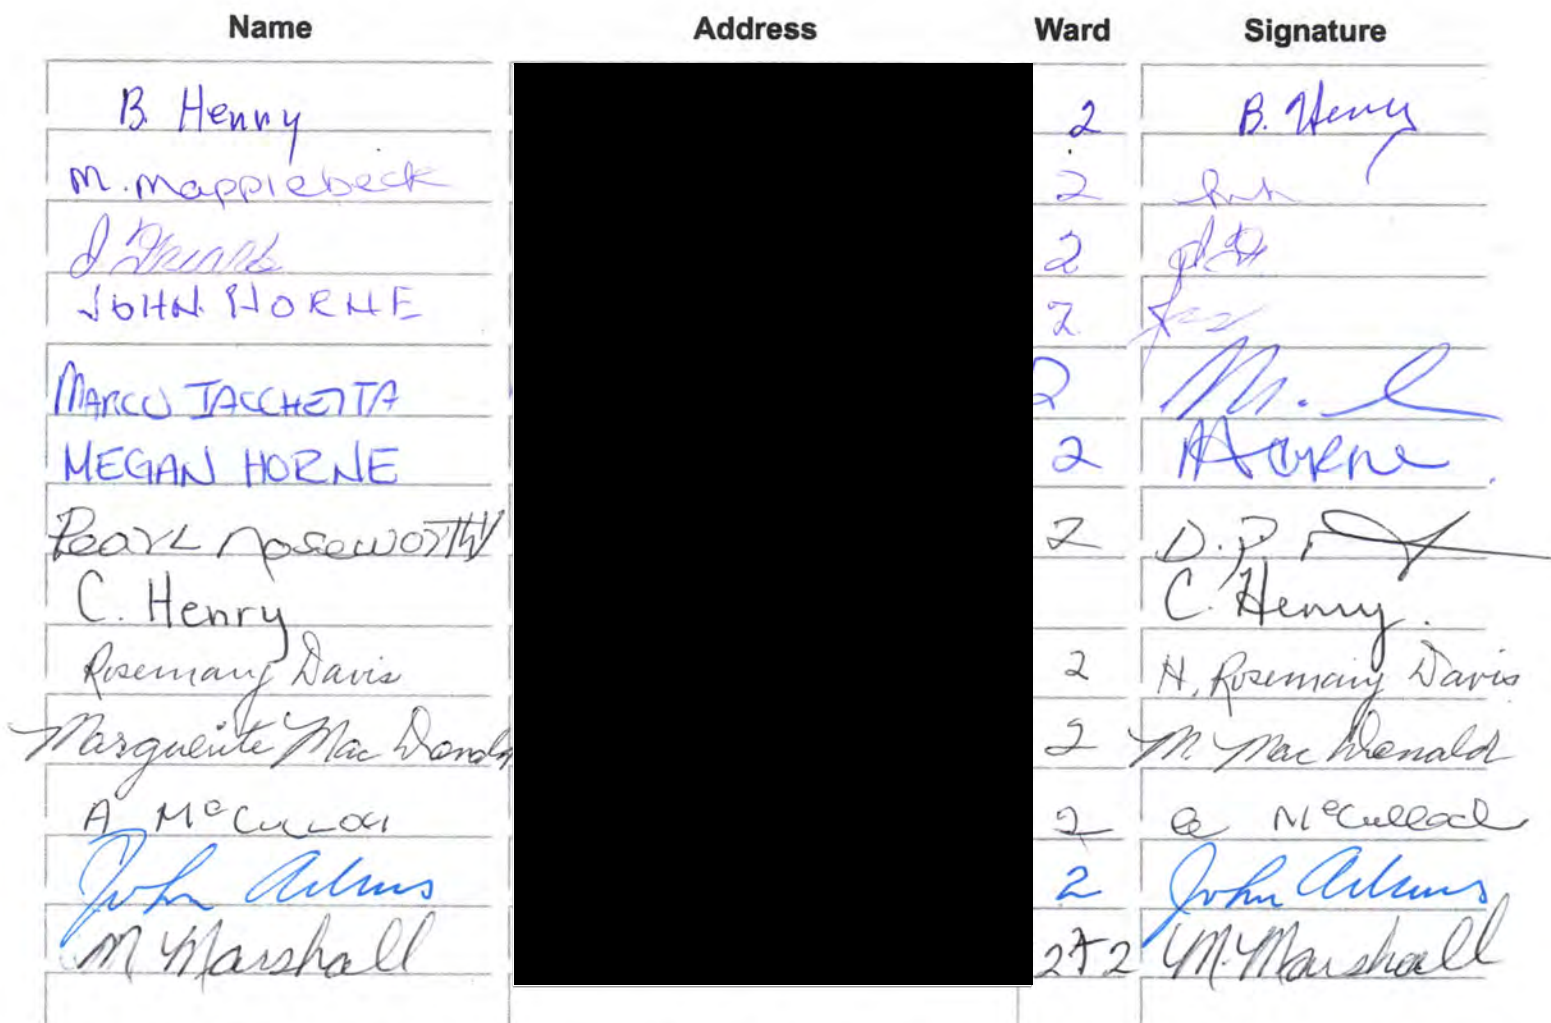 Name Address Ward Signature
B. Henry 2 B. Henry
M. Mapplebeck 2
J 2
JOHN HORNE 2
MARCO IACCHETTA 2 M.
MEGAN HORNE 2 M Horne
Pearl Noseworthy 2 D. P.
C. Henry C. Henry.
Rosemary Davis 2 H. Rosemary Davis
Marguerite MacDonald 2 M. MacDonald
A McCulloch 2 a McCulloch
John 2 John
M Marshall 2 M. Marshall